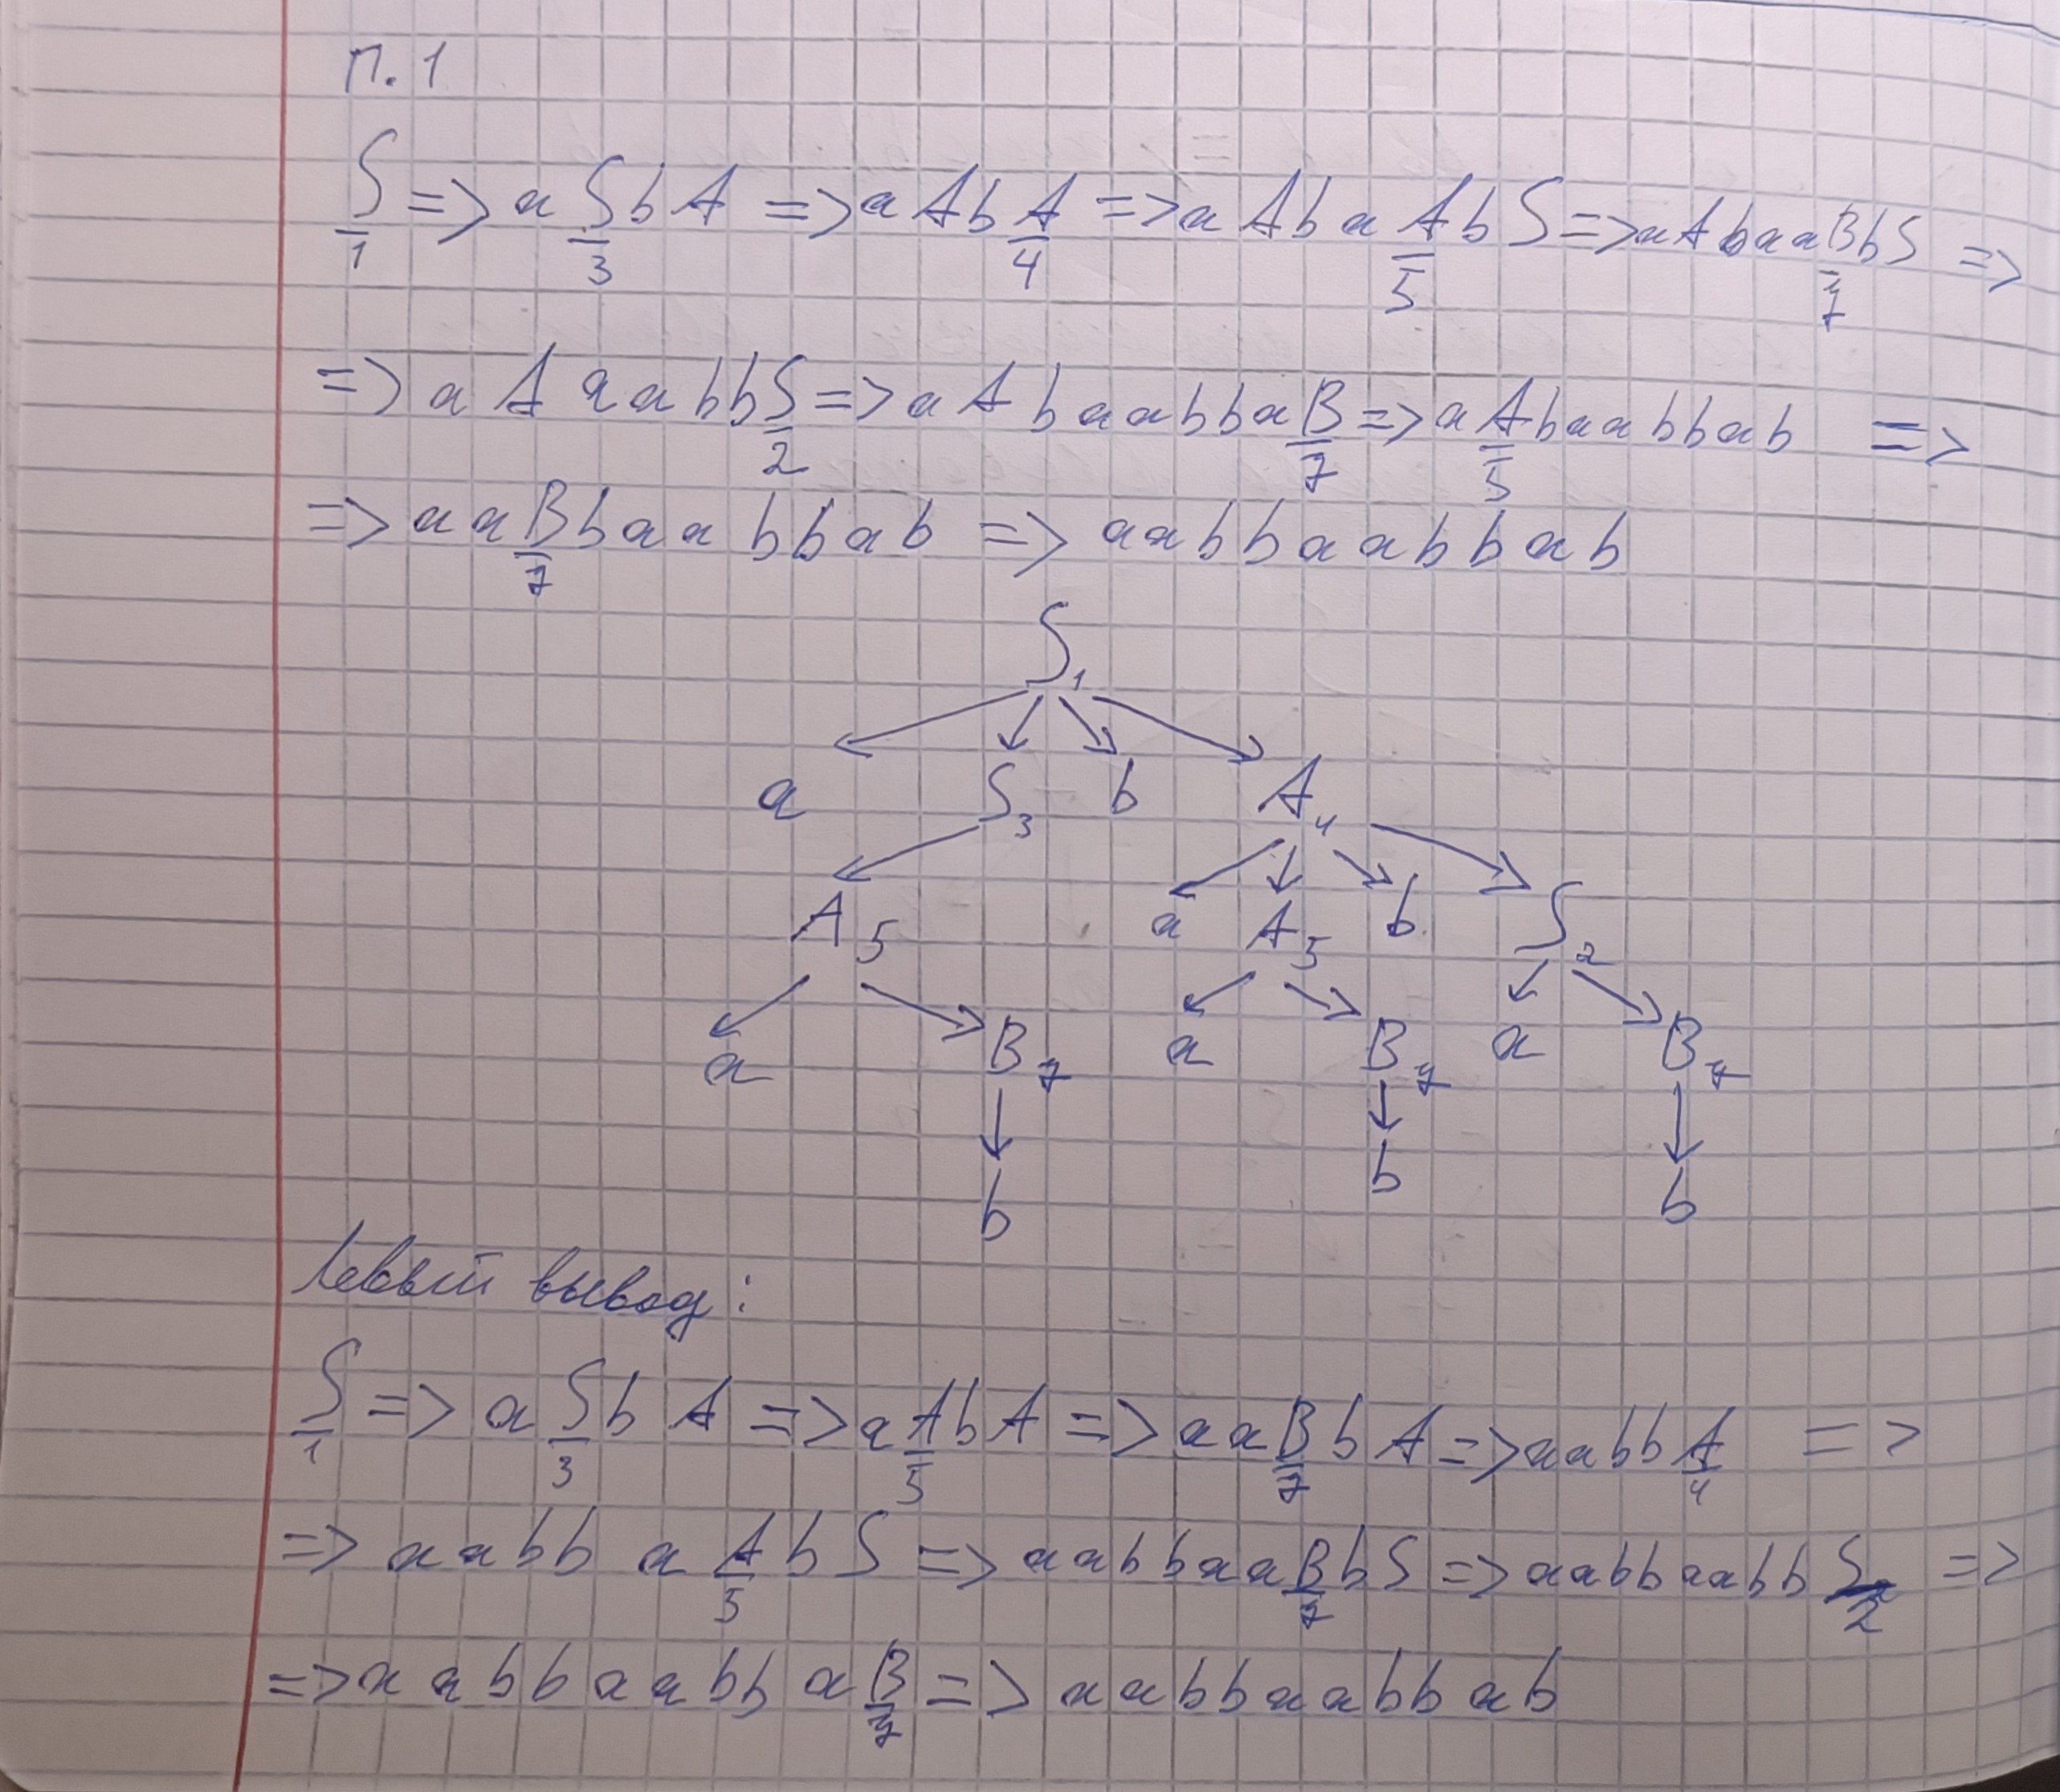 п. 1
S => a S b A => a A b A => a A b a A b S => a A b a a B b S =>
1 3 4 5 7
=> a A a a b b S => a A b a a b b a B => a A b a a b b a b =>
2 7 5
=> a a B b a a b b a b => a a b b a a b b a b
7
S₁
a S₃ b A₄
A₅ a A₅ b S₂
a B₇ a B₇ a B₇
b b b
Левый вывод:
S => a S b A => a A b A => a a B b A => a a b b A =>
1 3 5 7 4
=> a a b b a A b S => a a b b a a B b S => a a b b a a b b S =>
5 7 2
=> a a b b a a b b a B => a a b b a a b b a b
7